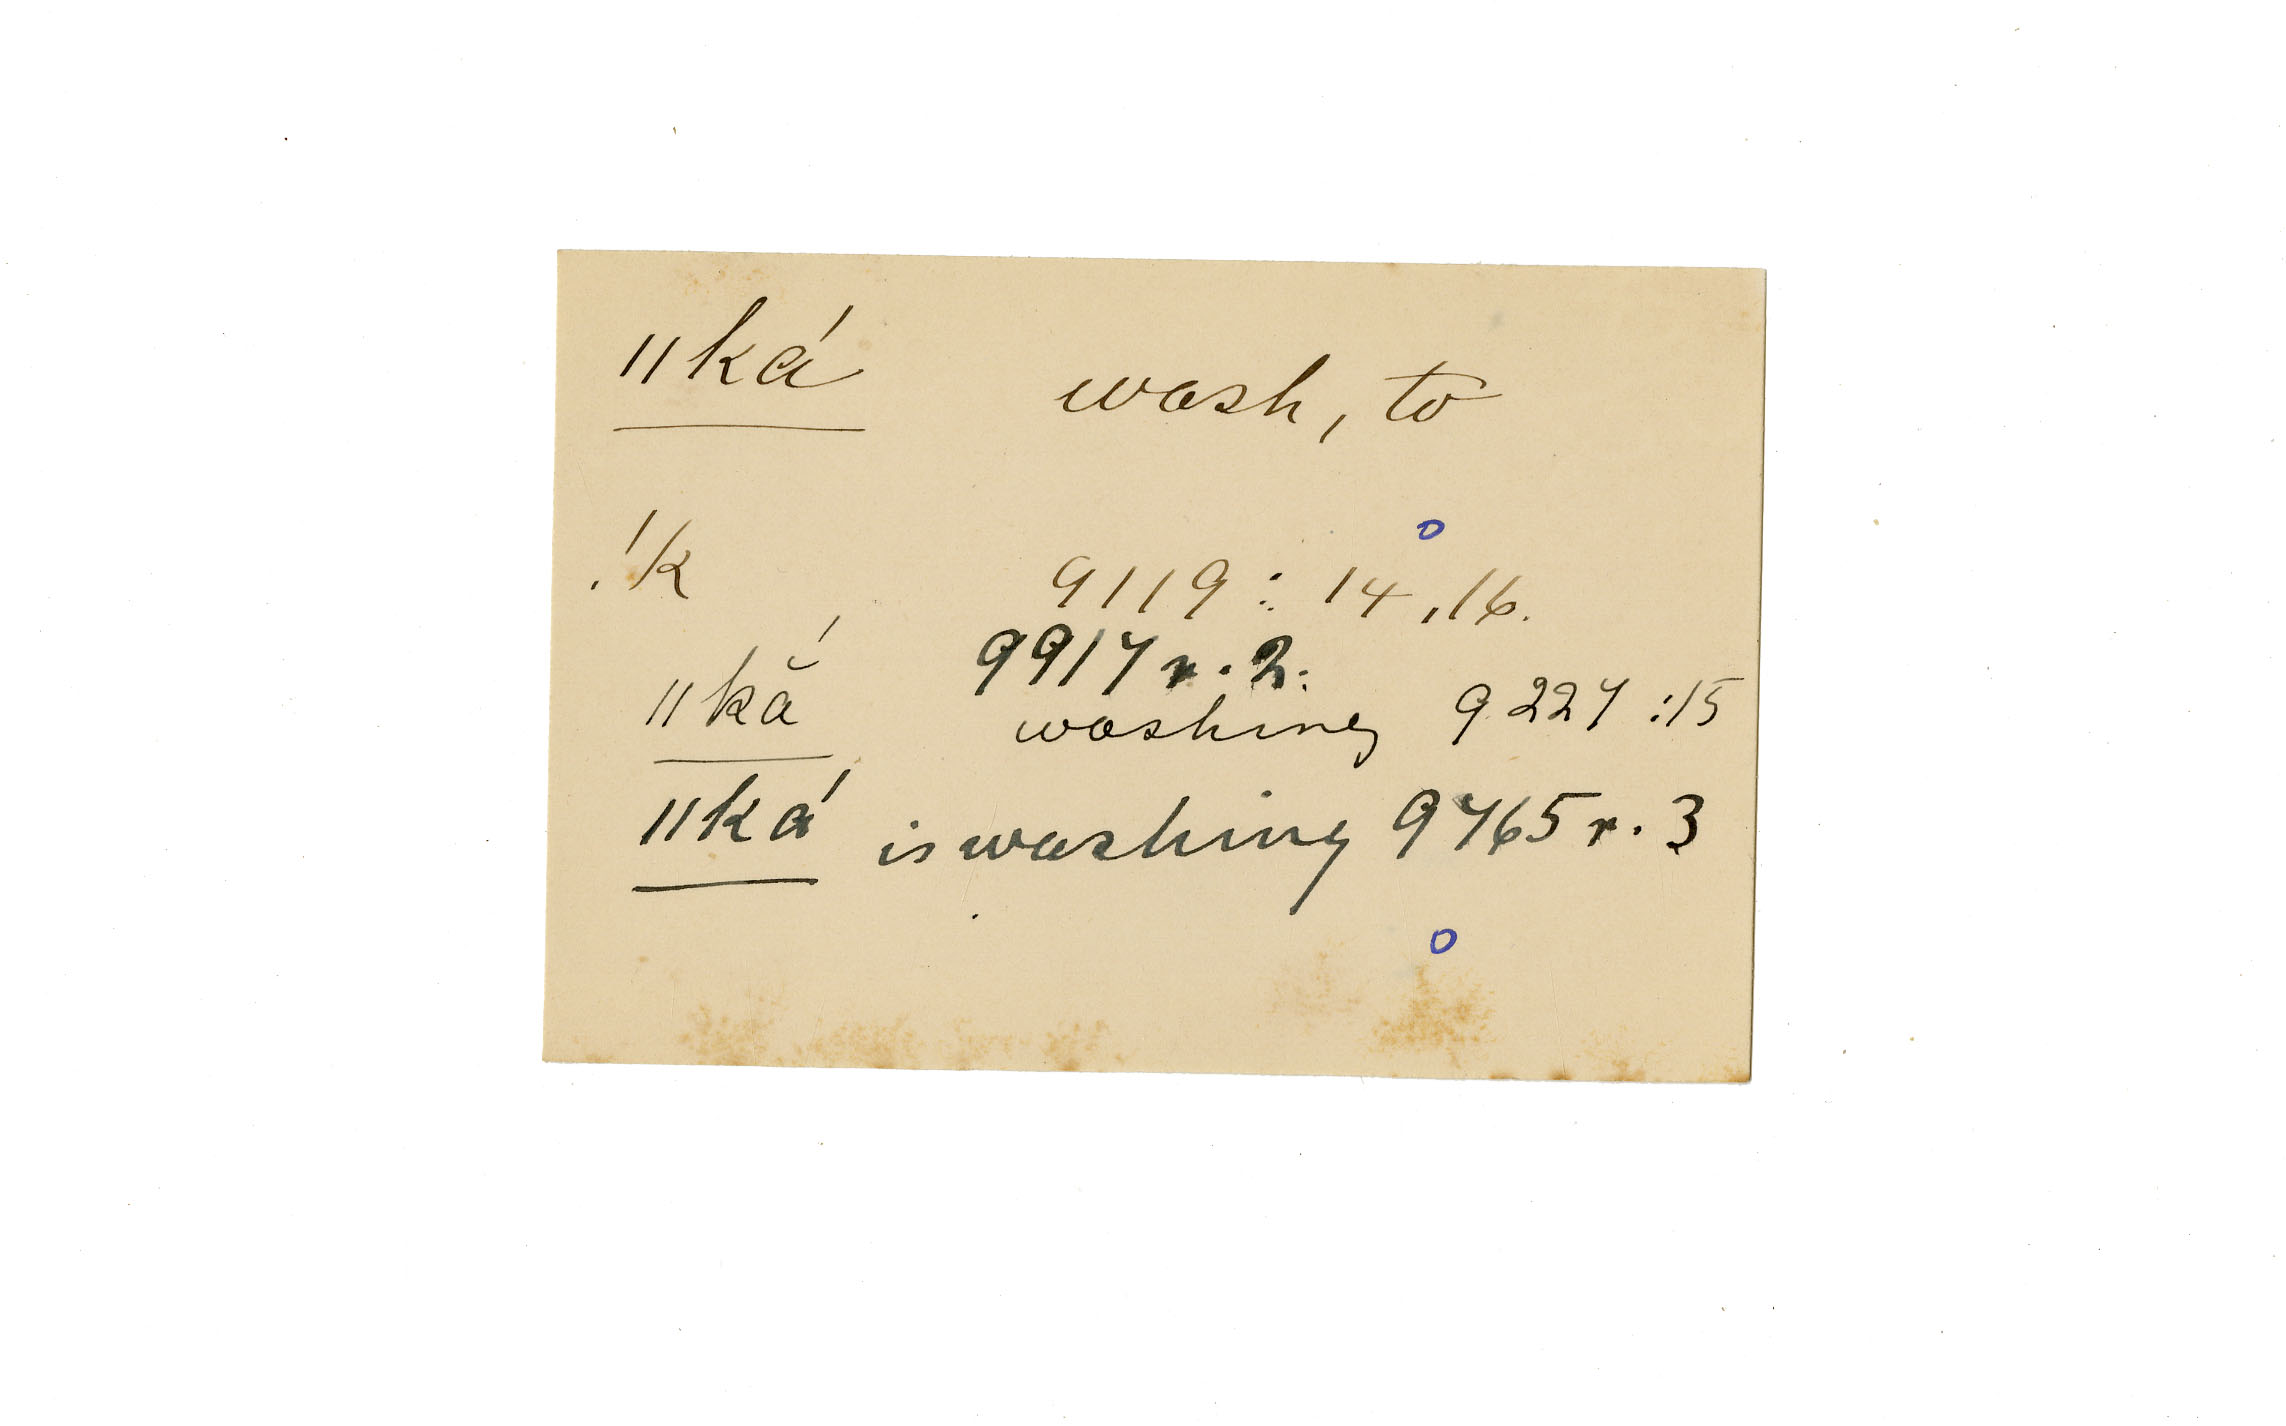 ǁká wash, to
!k 9119 : 14, 16.
9917 r. 2.
ǁkắ washing 9227 : 15
ǁká is washing 9765 r. 3